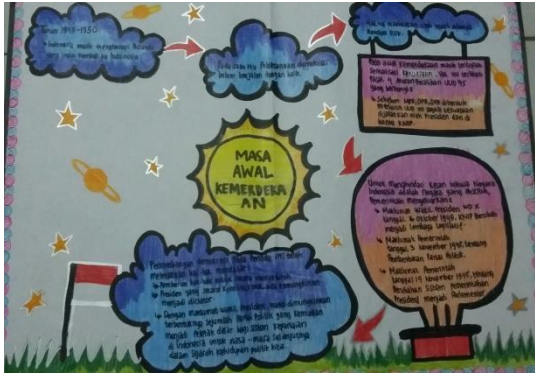 Tahun 1945-1950
Indonesia masih menghadapi Belanda
yang ingin kembali ke Indonesia.
Pada saat itu Pelaksanaan demokrasi
belum berjalan dengan baik.
Hal itu disebabkan oleh masih adanya
Revolusi fisik.
Pada awal kemerdekaan masih terdapat
Sentralisasi kekuasaan, hal itu terlihat
Pasal 4 Aturan Peralihan UUD 45
yang berbunyi
Sebelum MPR, DPR, DPA dibentuk
menurut UUD ini segala kekuasaan
dijalankan oleh Presiden dan di
bantu KNIP.
MASA
AWAL
KEMERDEKA
AN
Untuk menghindari kesan bahwa Negara
Indonesia adalah negara yang absolut,
Pemerintah mengeluarkan
Maklumat Wakil Presiden No X
tanggal 16 Oktober 1945, KNIP berubah
menjadi lembaga legislatif.
Maklumat Pemerintah
tanggal 3 November 1945, tentang
Pembentukan Partai Politik.
Maklumat Pemerintah
tanggal 14 November 1945, tentang
Perubahan Sistem Pemerintahan
Presidensil menjadi Parlementer
Perkembangan demokrasi Pada Periode ini telah
meletakkan hal-hal mendasar
Pemberian hak-hak politik secara menyeluruh.
Presiden yang secara konstitusional ada kemungkinan
menjadi diktator.
Dengan maklumat wakil Presiden, maka dimungkinkan
terbentuknya sejumlah Partai Politik yang kemudian
menjadi Peletak dasar bagi sistem kepartaian
di Indonesia untuk masa-masa selanjutnya
dalam sejarah kehidupan politik kita.